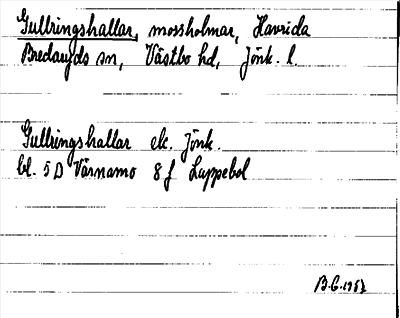 Gullringshallar, mossholmar, Havrida
Bredaryds sn, Västbo hd, Jönk. l.
Gullringshallar ek. Jönk.
bl. 5 D Värnamo 8 f Lappebol
B.E. 1957